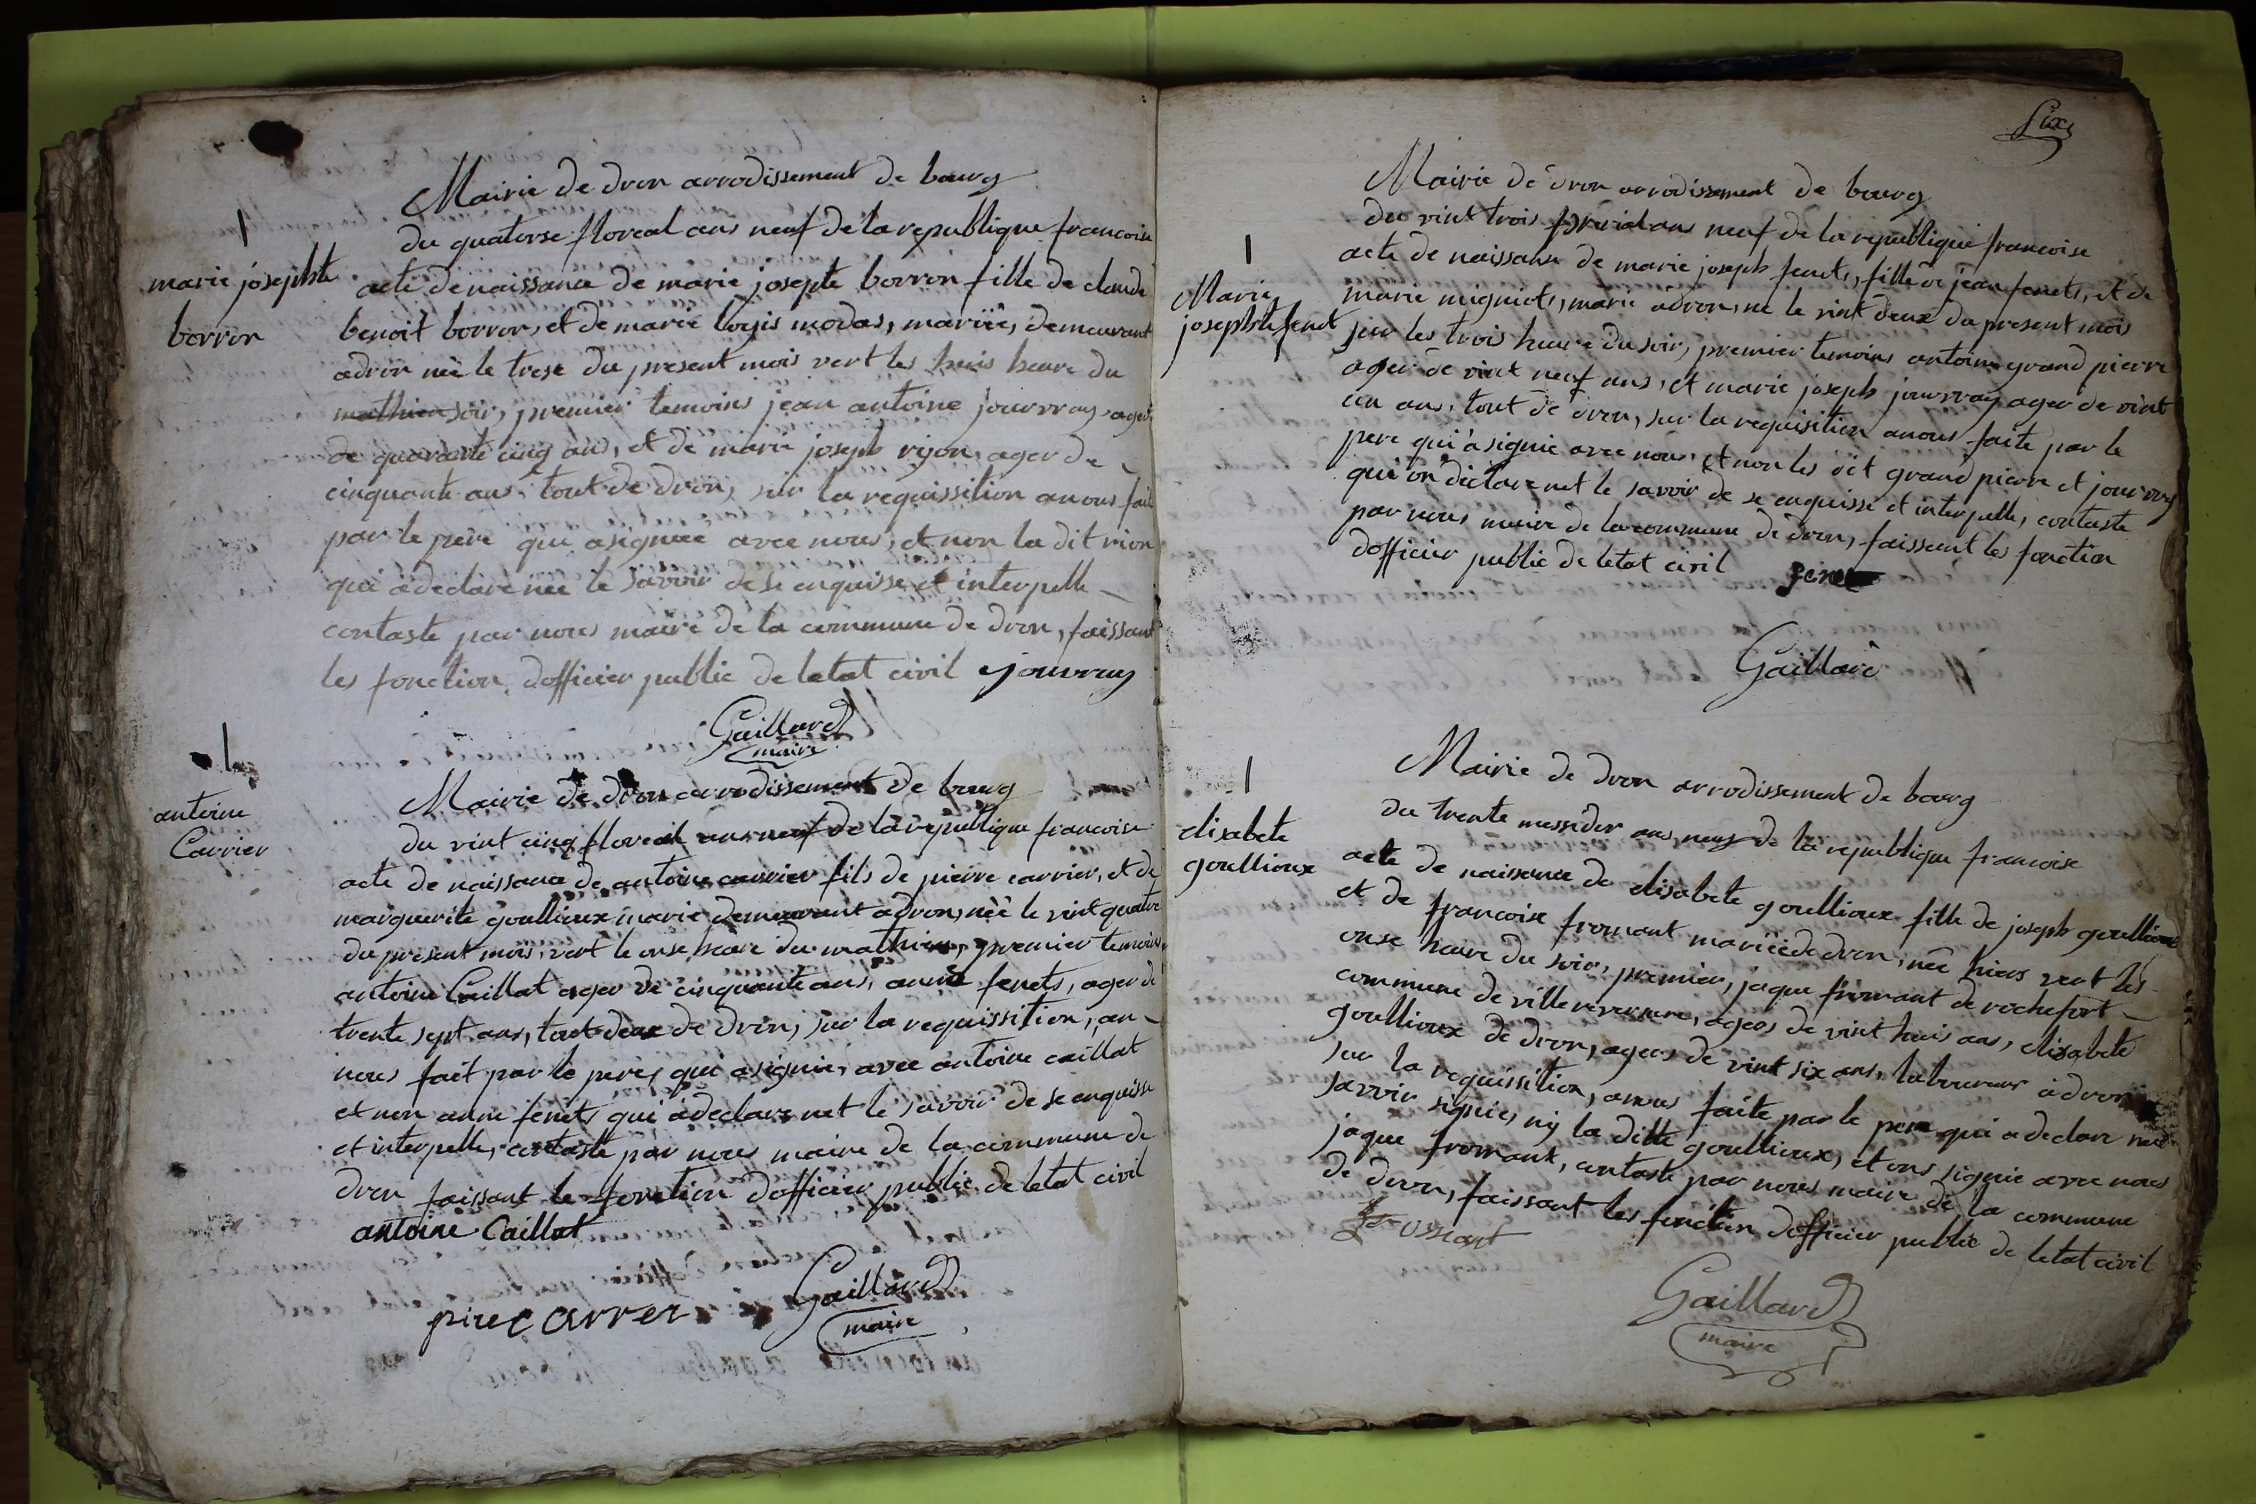 Mairie de dron arrodissement de bourg
du quatorse floreal ans neuf de la republique francoise
marie josephte
borron
acte de naissance de marie josepte borron fille de claude
benoit borron, et de marie logis modas, mariéé, demeurant
a dron néé le trese du present mois vert les huis heure du
mathien soir, premier temoins jean antoine jourvray ager
de quarante cinq ans, et de marie joseph rijon, ager de
cinquante ans, tout de dron, sur la requissition a nous fait
par le pere qui a signéé avec nous, et non la dit rion
qui a declare néé le savoir de se enquisse et interpelle
contaste par nous maire de la commune de dron, faissant
les fonction dofficier public de letat civil jouvray
Gaillard
maire
antoine
Carrier
Mairie de dron arrodissement de bourg
du vint cinq floreal ans neuf de la republique francoise
acte de naissance de antoine carrier fils de pierre carrier, et de
marguerite goullioux marie demeurant a dron, néé le vint quatre
du present mois, vert le onse heure du mathien, premier temoins
antoine Caillat ager de cinquante ans, anne fenets, ager de
trente sept ans, tout deux de dron, sur la requissition, an
nous fait par le pere, qui a signie, avec antoine caillat
et non anne fenets qui a declare net le savoir de se enquisse
et interpelle, contaste par nous maire de la commune de
dron faissant le fonction dofficier public de letat civil
antoine Caillat
pire carrer
Gaillard
maire
six
Mairie de dron arrodissement de bourg
du vint trois prerial ans neuf de la republique francoise
Marie
josephte fenet
acte de naissanse de marie joseph fenets, fille de jean fenets, et de
marie migniots, marie a dron, né le vint deux du present mois
sur les trois heure du soir, premier temoins antoine grand pierre
ager de vint neuf ans, et marie joseph jourvray ager de vint
un ans, tout de dron, sur la requisition a nous faite par le
pere qui a signie avec nous, et non les dit grand pierre et jourvray
qui on declare net le savoir de se enquisse et interpelle, contaste
par nous maire de la commune de dron, faissant les fonction
dofficier public de letat civil
Gaillard
Mairie de dron arrodissement de bourg
du trente messidor ans neuf de la republique francoise
elisabete
goullioux
acte de naissance de elisabete goullioux fille de joseph goullioux
et de francoise fromant mariéé de dron, néé hiers vert les
onse heure du soir, premier, jaque fromant de rochefort
commune de villereversure, agers de vint huis ans, elisabete
goullioux de dron, agers de vint six ans, laboureur a dron
sur la requissition, a nous faite par le pere qui a declare net
savoir signier, ny la ditte goullioux, et ons signie avec nous
jaque fromant, contaste par nous maire de la commune
de dron, faissant les fonction dofficier public de letat civil
Gaillard
maire